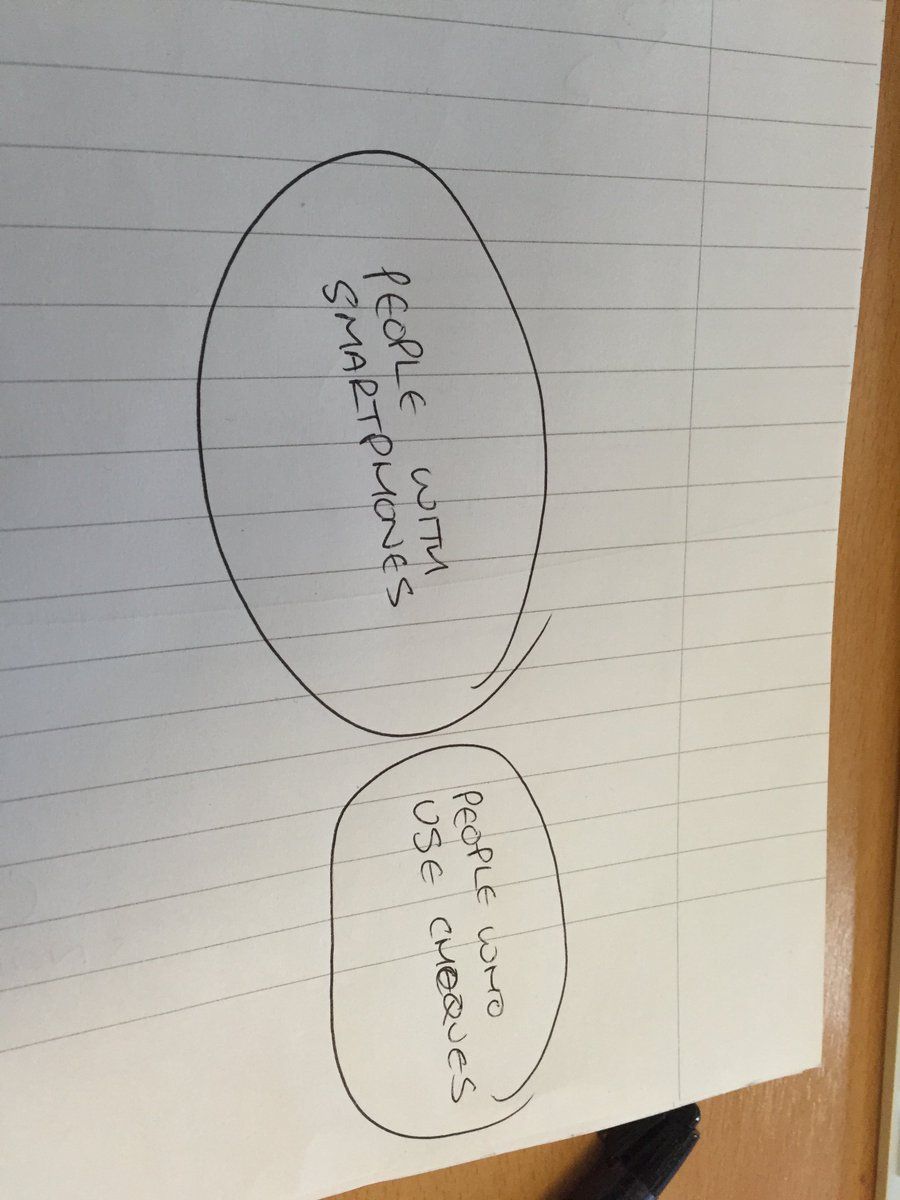 PEOPLE WITH
SMARTPHONES
PEOPLE WHO
USE CHEQUES